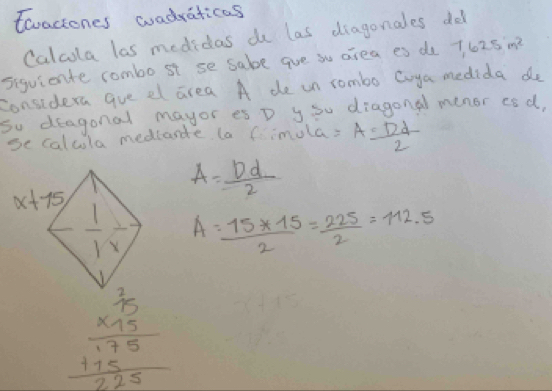 Ecuaciones cuadráticas
Calcula las medidas de las diagonales del
siguiente rombo si se sabe que su área es de 1,625 m²
Considera que el área A de un rombo cuya medida de
su diagonal mayor es D y su diagonal menor es d,
se calcula mediante la = A = Dd/2
A = Dd/2
x+15
A = 15*15/2 = 225/2 = 112.5
x
2
15
x15
175
+15
225